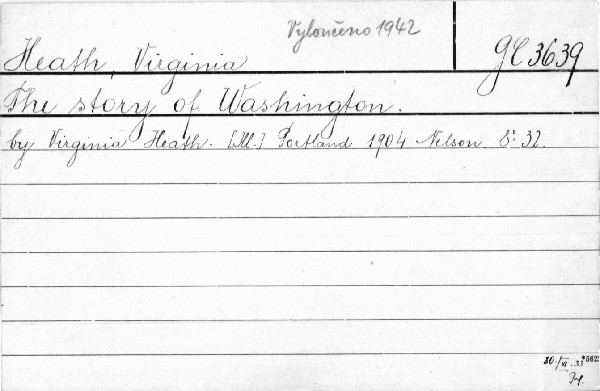 Vyloučeno 1942
GC 3639
Heath, Virginia
The story of Washington.
by Virginia Heath. [Ill.] Portland 1904 Nelson. 8° 32.
30./XI.33
H.